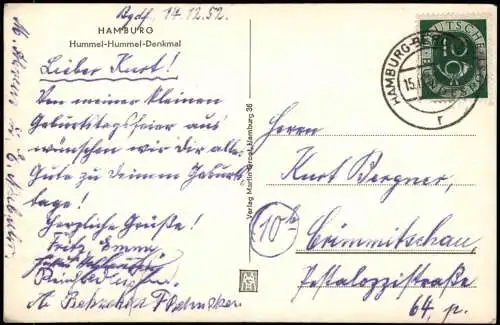 Bgdf. 14.12.52.
HAMBURG
Hummel-Hummel-Denkmal
Lieber Kurt!
Von meiner kleinen
Geburtstagsfeier aus
wünschen wir Dir alles
Gute zu Deinem Geburts
tage!
Herzliche Grüße!
Fritz Emma
Verlag Martin Groot, Hamburg 36
HAMBURG-B
15.
r
DEUTSCHE
10
Herrn
Kurt Bergner,
(10b)
Crimmitschau,
Pestalozzistraße
64, p.